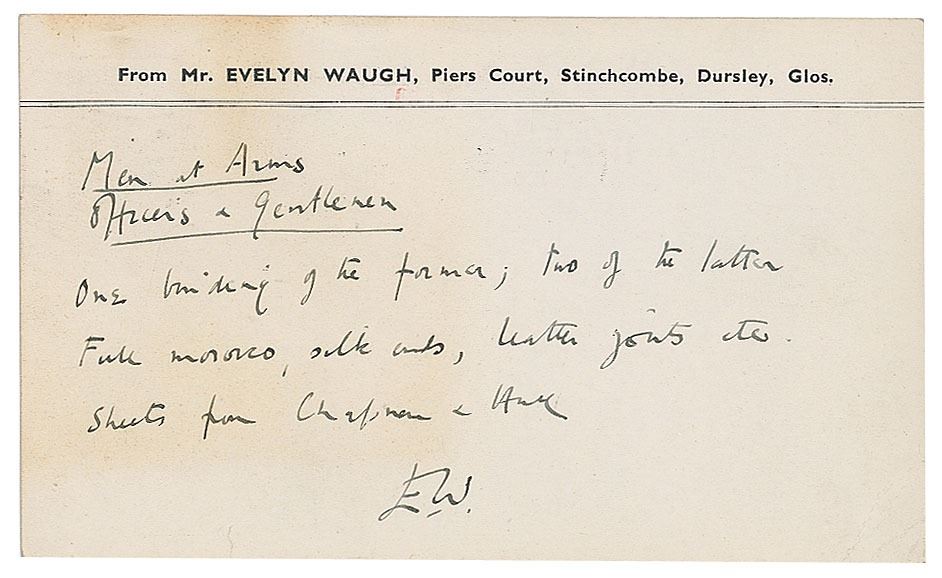 From Mr. EVELYN WAUGH, Piers Court, Stinchcombe, Dursley, Glos.
Men at Arms
Officers & Gentlemen
One binding of the former; two of the latter
Full morocco, silk ends, leather joints etc.
Sheets from Chapman & Hall
E.W.